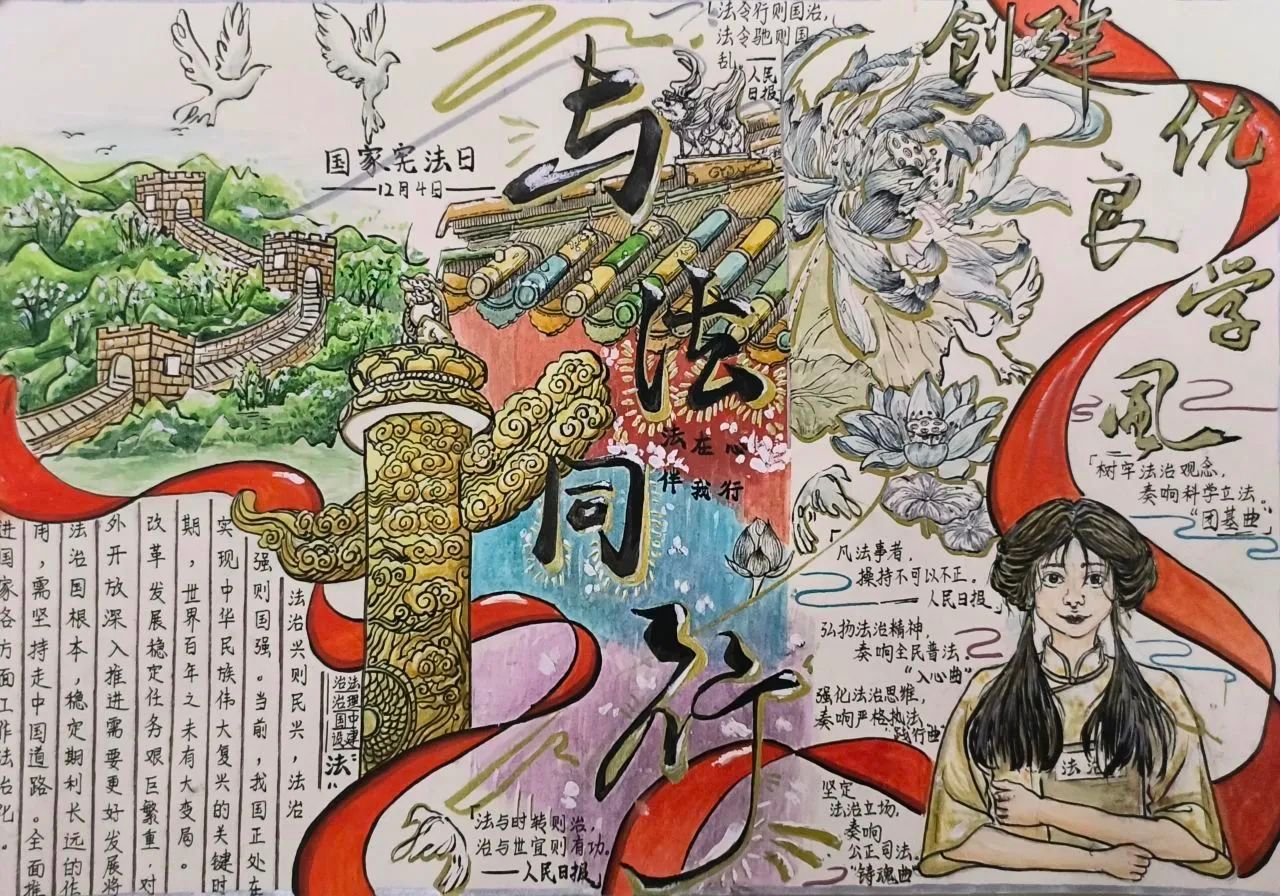 国家宪法日
12月4日
与法同行
「法令行则国治，
法令驰则国
乱。——
人民
日报
创建优良学风
法在心
伴我行
「树牢法治观念，
奏响科学立法。
“团基曲”」
「凡法事者，
操持不可以不正。
——人民日报」
弘扬法治精神，
奏响全民普法。
“入心曲”
强化法治思维，
奏响严格执法，
“践行曲”
坚定
法治立场，
奏响
公正司法。
“铸魂曲”
法治
「法与时转则治，
治与世宜则有功。
——人民日报」
法理中建
治治国设
“法”
法治兴则民兴，法治
强则国强。当前，我国正处在
实现中华民族伟大复兴的关键时
期，世界百年之未有大变局。
改革发展稳定任务艰巨繁重，对
外开放深入推进需要更好发展将
法治国根本，稳定期利长远的作
用，需坚持走中国道路。全面推
进国家各方面工作法治化。